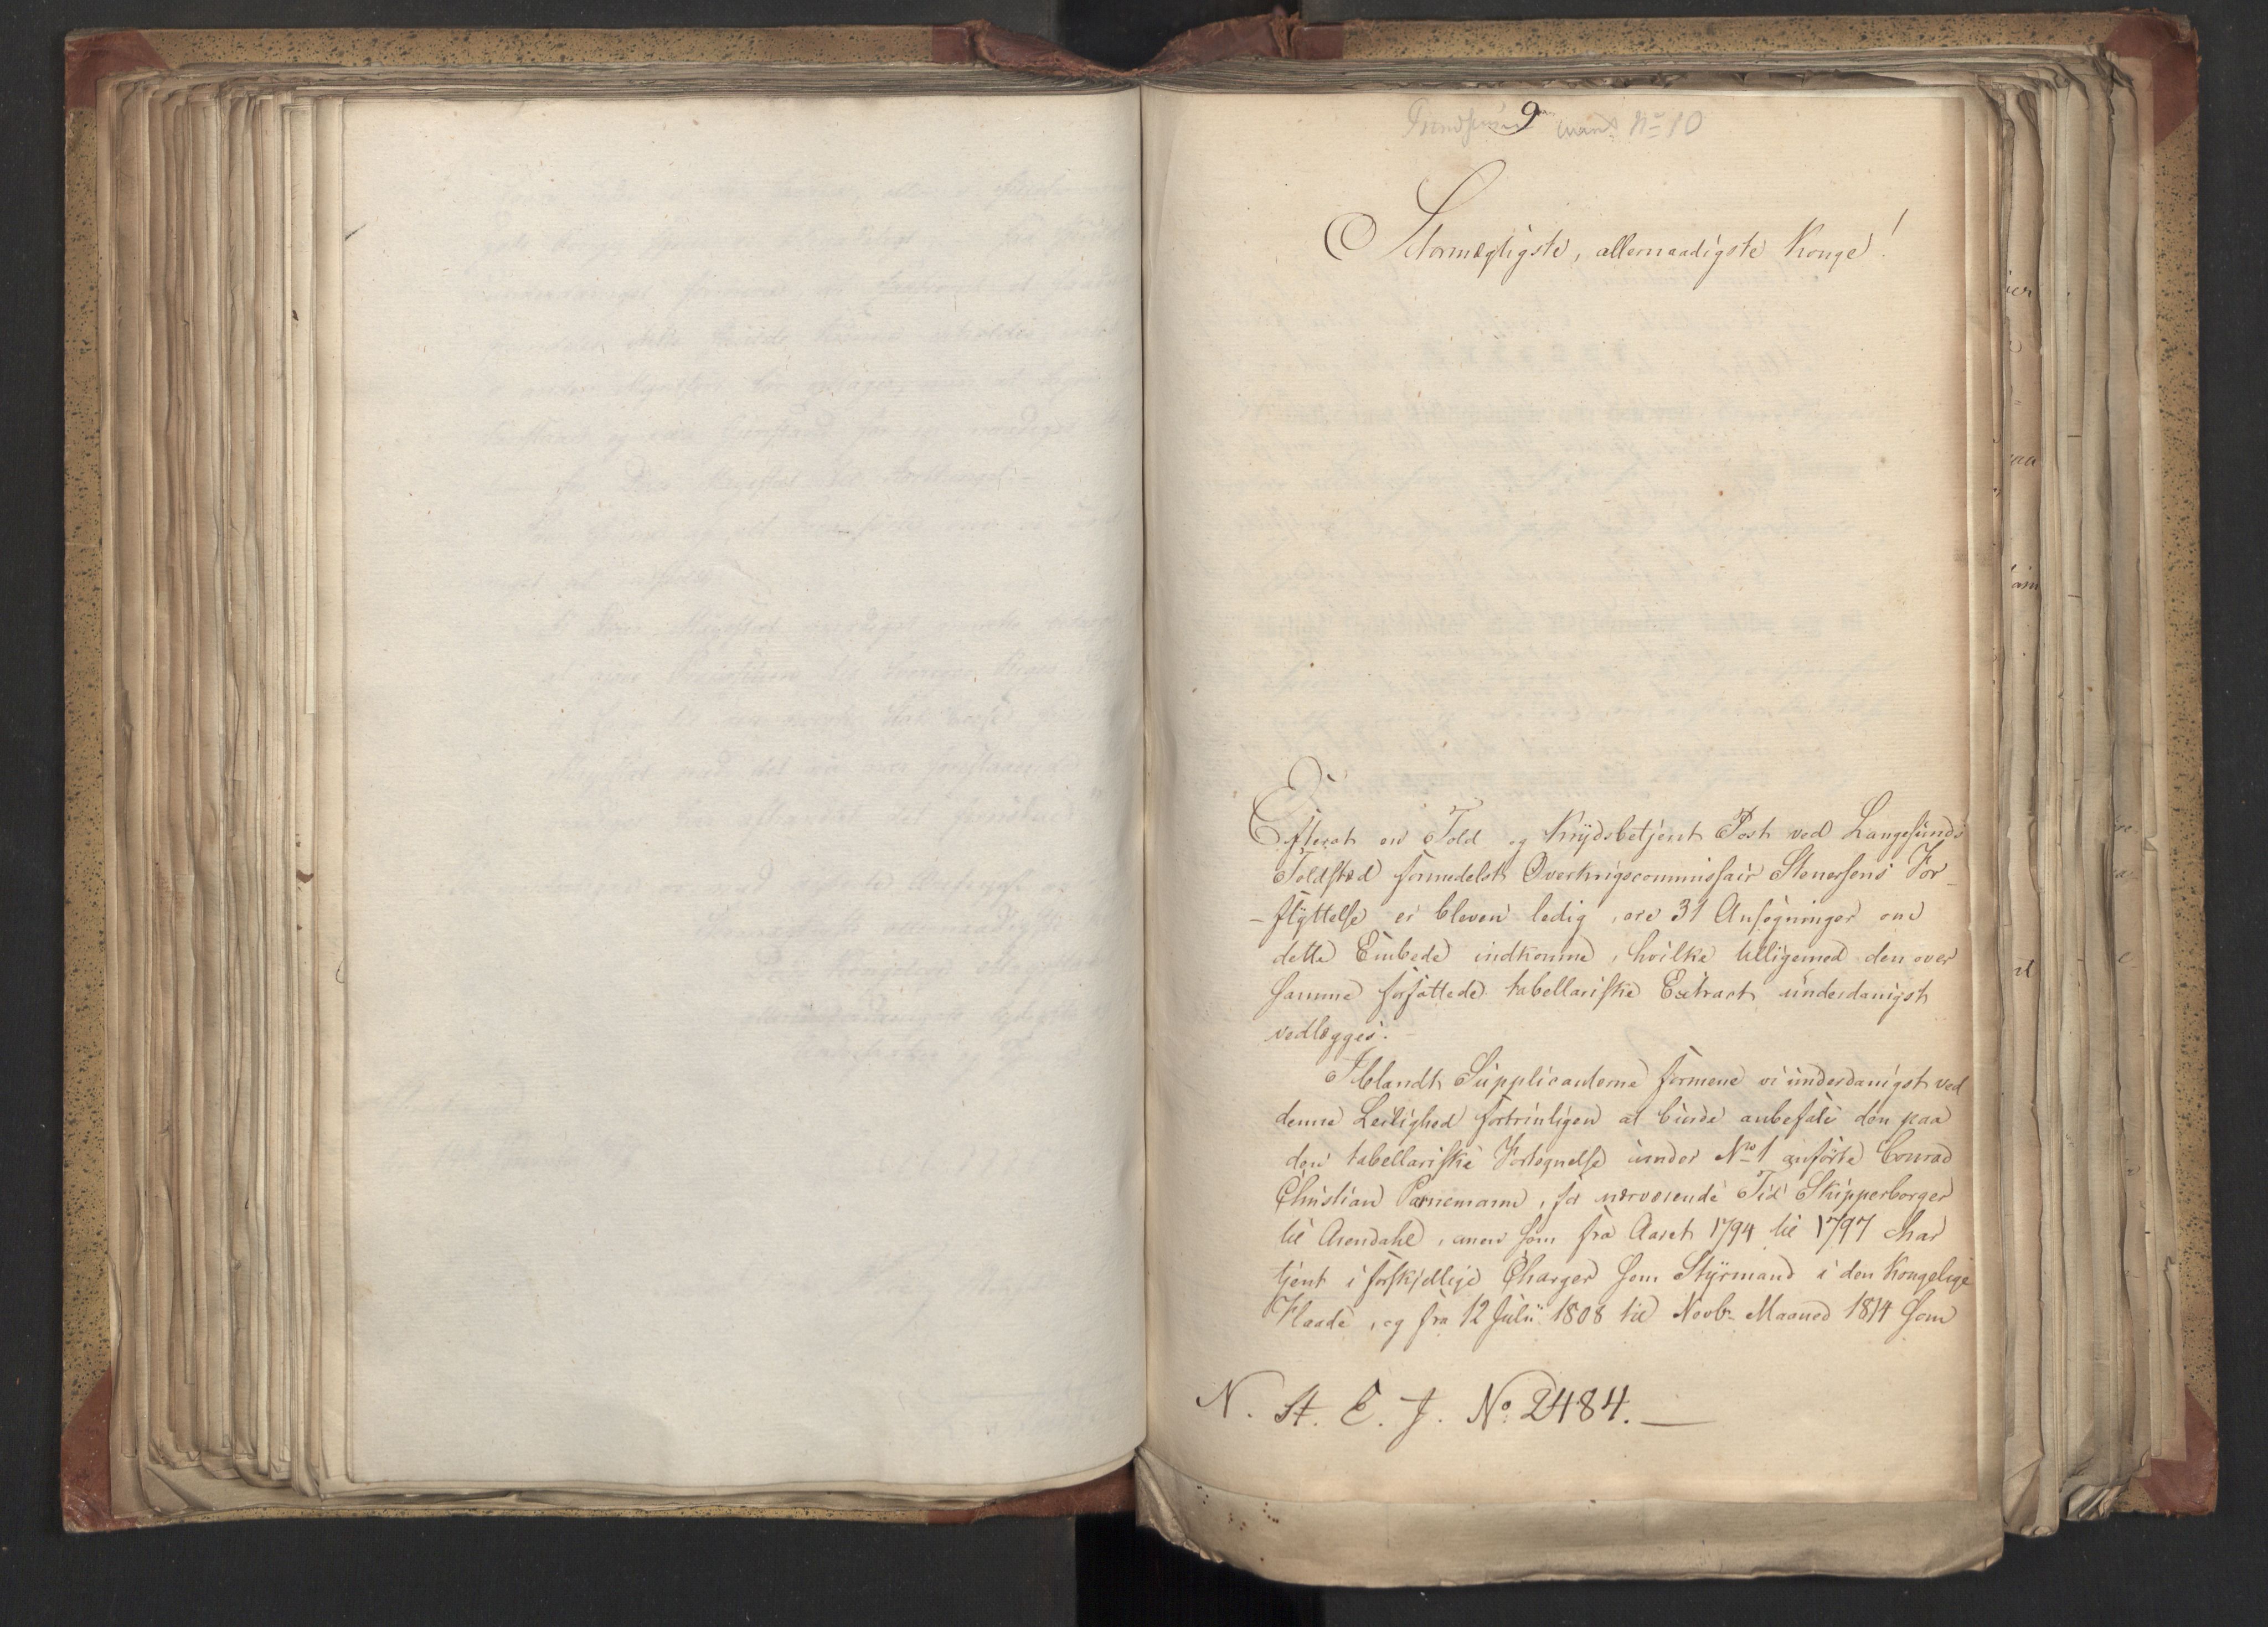 9
No 10
Stormægtigste, allernaadigste Konge!
Efterat en Told og Krydsbetjent Post ved Langesunds
Toldsted formedelst Overkrigscommissair Stenersens For-
-flyttelse er bleven ledig, ere 31 Ansøgninger om
dette Embede indkomne, hvilke tilligemed den over
samme forfattede tabellariske Extract underdanigst
vedlegges. -
Iblandt Supplicanterne formene vi underdanigst ved
denne Leilighed fortrinligen at burde anbefale den paa
den tabellariske Fortegnelse under No 1 anførte Conrad
Christian Parnemann, for nærværende Tid Skipperborger
til Arendahl, en som fra Aaret 1794 til 1797 har
tjent i forskjellige Charger som Styrmand i den Kongelige
Flaade, og fra 12 Julii 1808 til Novbr Maaned 1814 som
N. St. E. J. No 2484. —